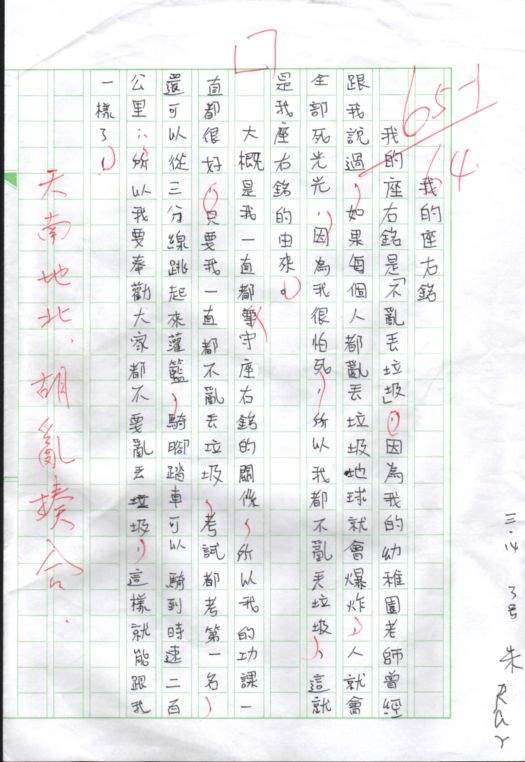 三.14 3号 朱
65-1
64.
我的座右銘
我的座右銘是「不亂丟垃圾」，因為我的幼稚園老師曾經
跟我說過，如果每個人都亂丟垃圾地球就會爆炸，人就會
全部死光光，因為我很怕死，所以我都不亂丟垃圾，這就
是我座右銘的由來。
大概是我一直都遵守座右銘的關係，所以我的功課一
直都很好，只要我一直都不亂丟垃圾，考試都考第一名，
還可以從三分線跳起來灌籃，騎腳踏車可以騎到時速二百
公里，所以我要奉勸大家都不要亂丟垃圾，這樣就能跟我
一樣了！
天南地北，胡亂揍合．